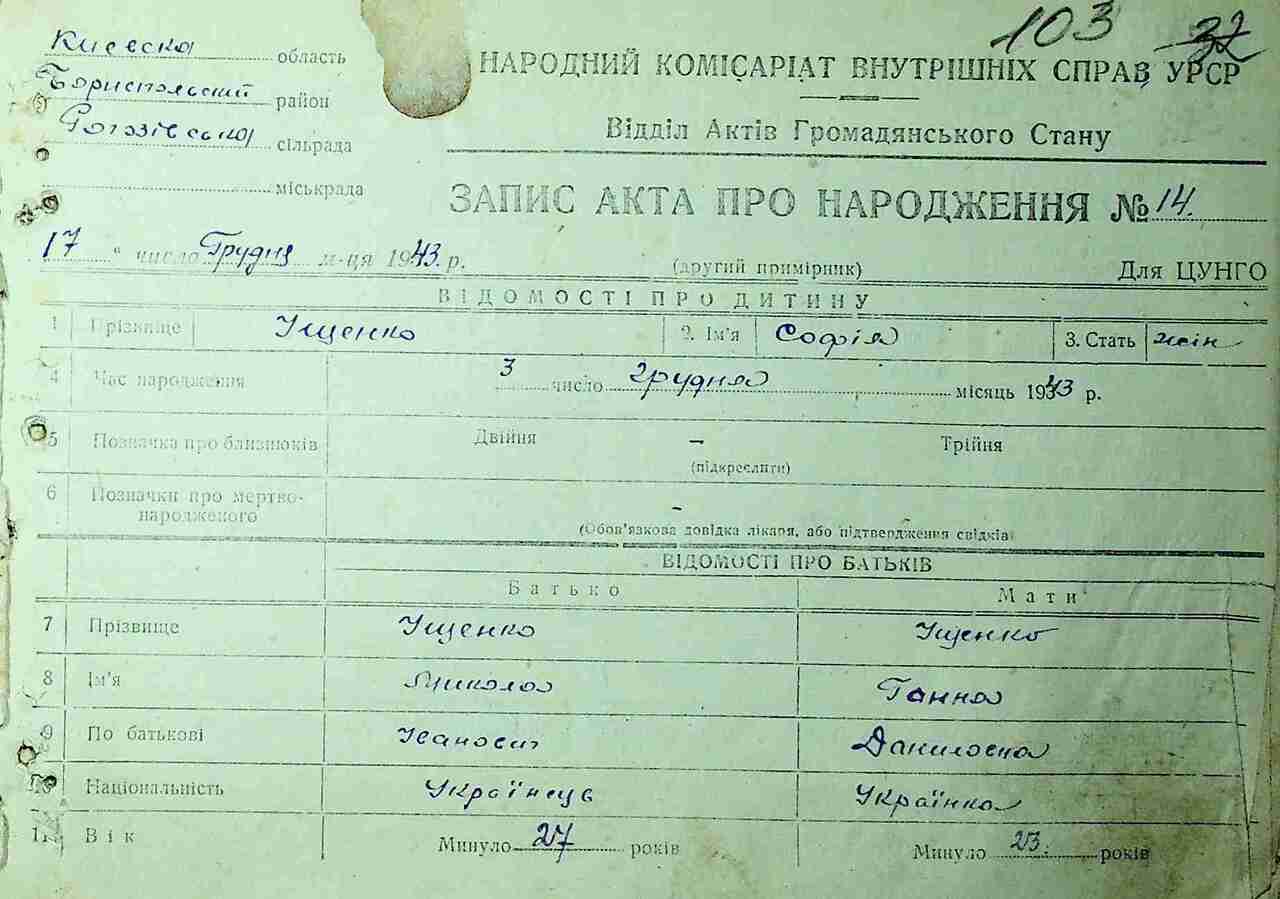 103 32
Киевска область
НАРОДНИЙ КОМІСАРІАТ ВНУТРІШНІХ СПРАВ УРСР
Бориспольский район
Відділ Актів Громадянського Стану
Рогозівська сільрада
міськрада
ЗАПИС АКТА ПРО НАРОДЖЕННЯ № 14.
17 " число Грудня м-ця 1943. р. (другий примірник) Для ЦУНГО
ВІДОМОСТІ ПРО ДИТИНУ
1 Прізвище Ищенко 2. Ім'я Софія 3. Стать жін
4 Час народження 3 число грудня місяць 1943 р.
5 Позначка про близнюків Двійня — Трійня
(підкреслити)
6 Позначки про мертво-
народженого -
(Обов'язкова довідка лікаря, або підтвердження свідків)
ВІДОМОСТІ ПРО БАТЬКІВ
Батько Мати
7 Прізвище Ищенко Ищенко
8 Ім'я Микола Ганна
9 По батькові Іванович Даниловна
10 Національність Українець Українка
11 Вік Минуло 27 років Минуло 23. років